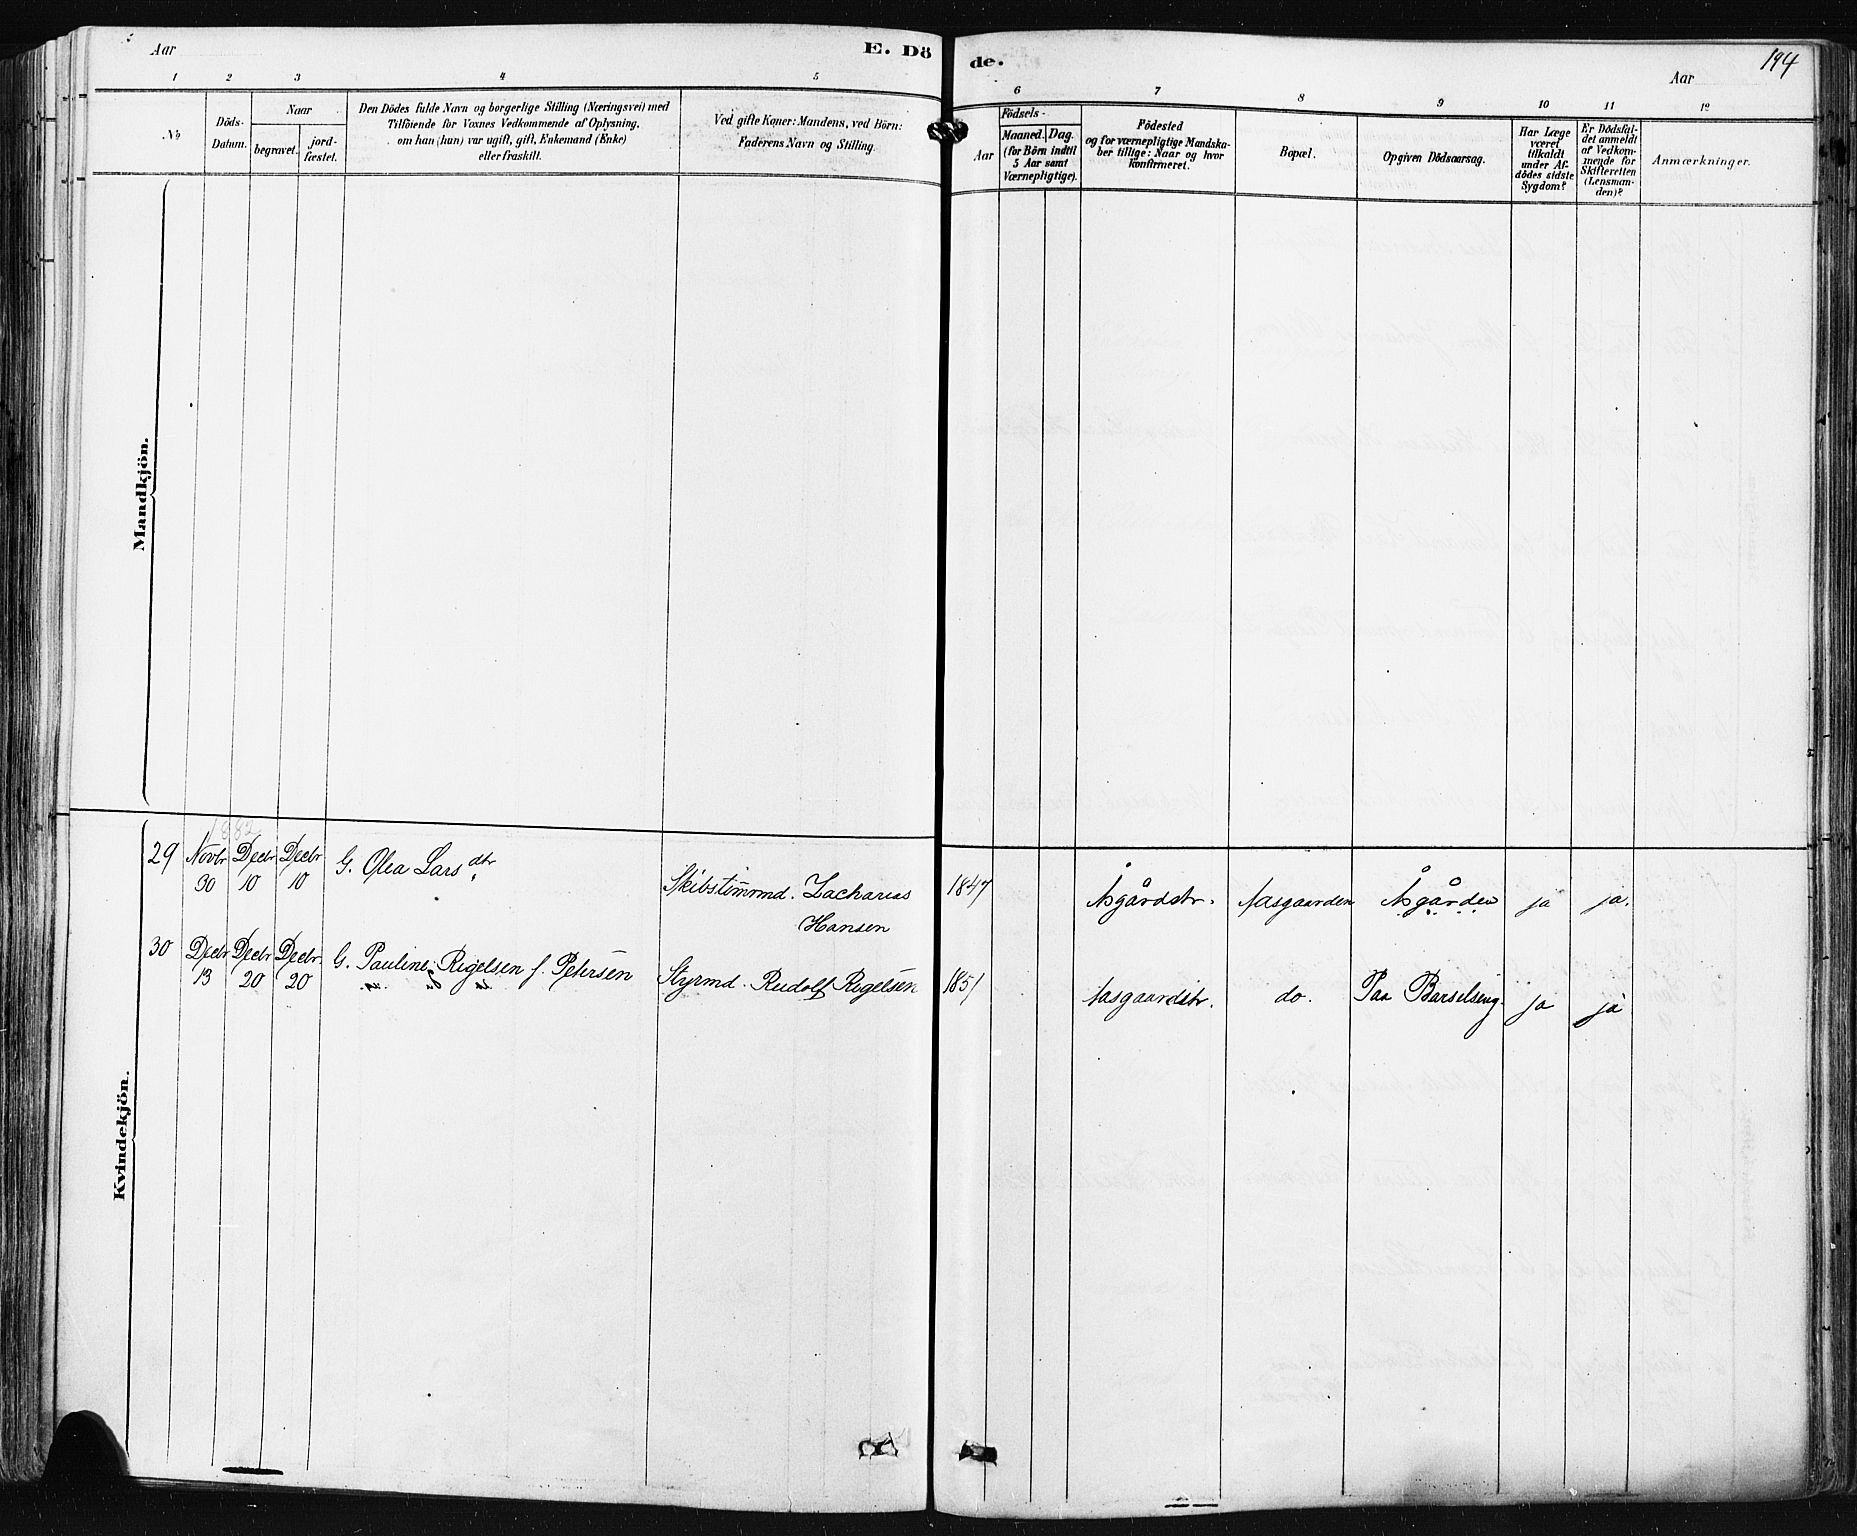 Aar
E. Dö
de.
Aar
194
1 2 3 4 5 6 7 8 9 10 11 12
No
Döds-
Datum.
Naar
begravet.
jord-
fæstet.
Den Dödes fulde Navn og borgerlige Stilling (Næringsvei) med
Tilföiende for Voxnes Vedkommende af Oplysning,
om han (hun) var ugift, gift, Enkemand (Enke)
eller fraskilt.
Ved gifte Koner: Mandens, ved Börn:
Faderens Navn og Stilling.
Födsels-
Aar
Maaned. Dag.
(for Börn indtil
5 Aar samt
Værnepligtige).
Födested
og for værnepligtige Mandska-
ber tillige: Naar og hvor
konfirmeret.
Bopæl.
Opgiven Dödsaarsag.
Har Læge
været
tilkaldt
under Af-
dödes sidste
Sygdom?
Er Dödsfal-
det anmeldt
af Vedkom-
mende for
Skifteretten
(Lensman-
den)?
Anmærkninger.
Mandkjön.
Kvindekjön.
1882
29 Novbr 30 Decbr 10 Decbr 10 G. Olea Larsdtr Skibstömmd. Zacharias
Hansen
1847 Åsgårdstr. Aasgaarden Åsgården ja ja.
30 Decbr 13 Decbr 20 Decbr 20 G. Pauline Rigelsen f. Petersen Styrmd. Rudolf Rigelsen
1851 Aasgaardstr. do. Paa Barselseng. ja ja